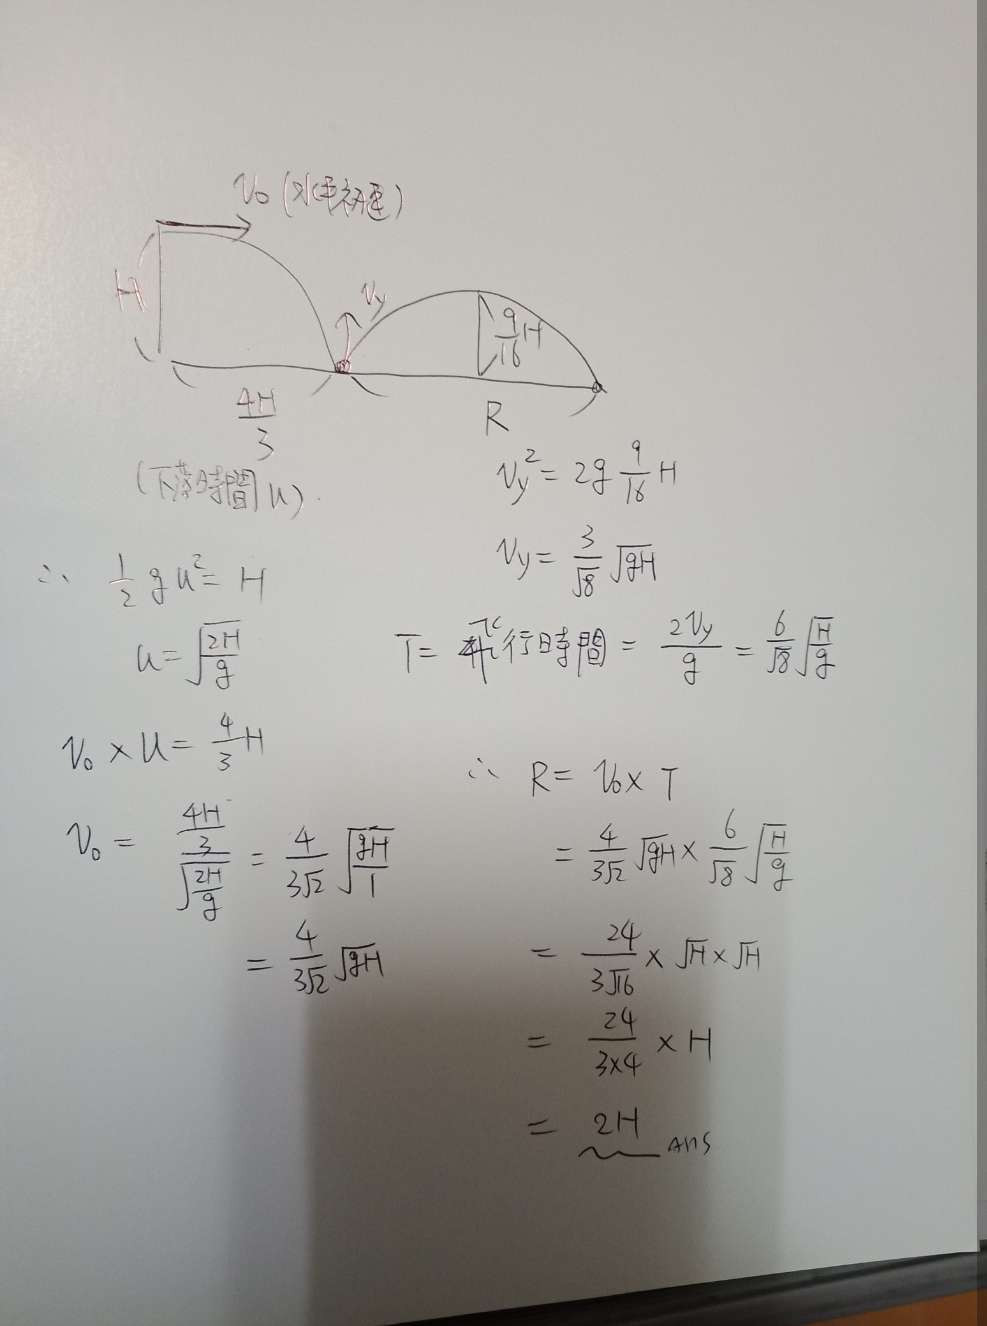 V₀ (水平初速)
H
Vy
9/16 H
4H/3
R
(下落時間 u)
Vy² = 2g 9/16 H
Vy = 3/√8 √gH
∴ 1/2 g u² = H
u = √(2H/g)
T = 飛行時間 = 2Vy/g = 6/√8 √(H/g)
V₀ × u = 4/3 H
V₀ = (4H/3)/√(2H/g) = 4/(3√2) √(gH/1)
= 4/(3√2) √gH
∴ R = V₀ × T
= 4/(3√2) √gH × 6/√8 √(H/g)
= 24/(3√16) × √H × √H
= 24/(3×4) × H
= 2H Ans